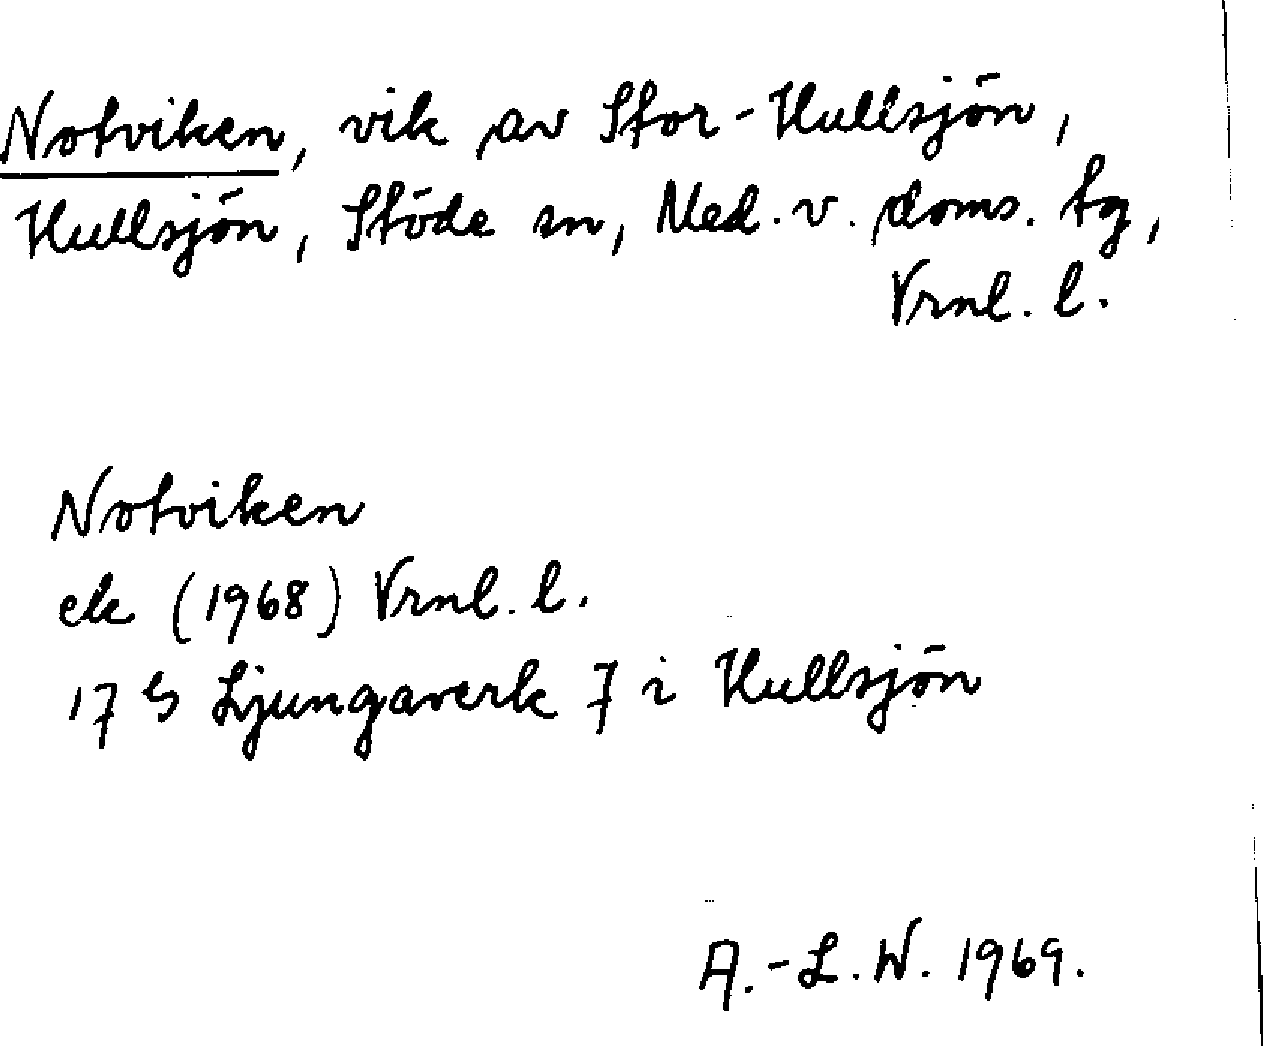 Notviken, vik av Stor-Hullsjön,
Hullsjön, Stöde sn, Med. v. doms. tg,
Vrnl. l.
Notviken
ek (1968) Vrnl. l.
17 G Ljungaverk 7 i Hullsjön
A.-L. W. 1969.